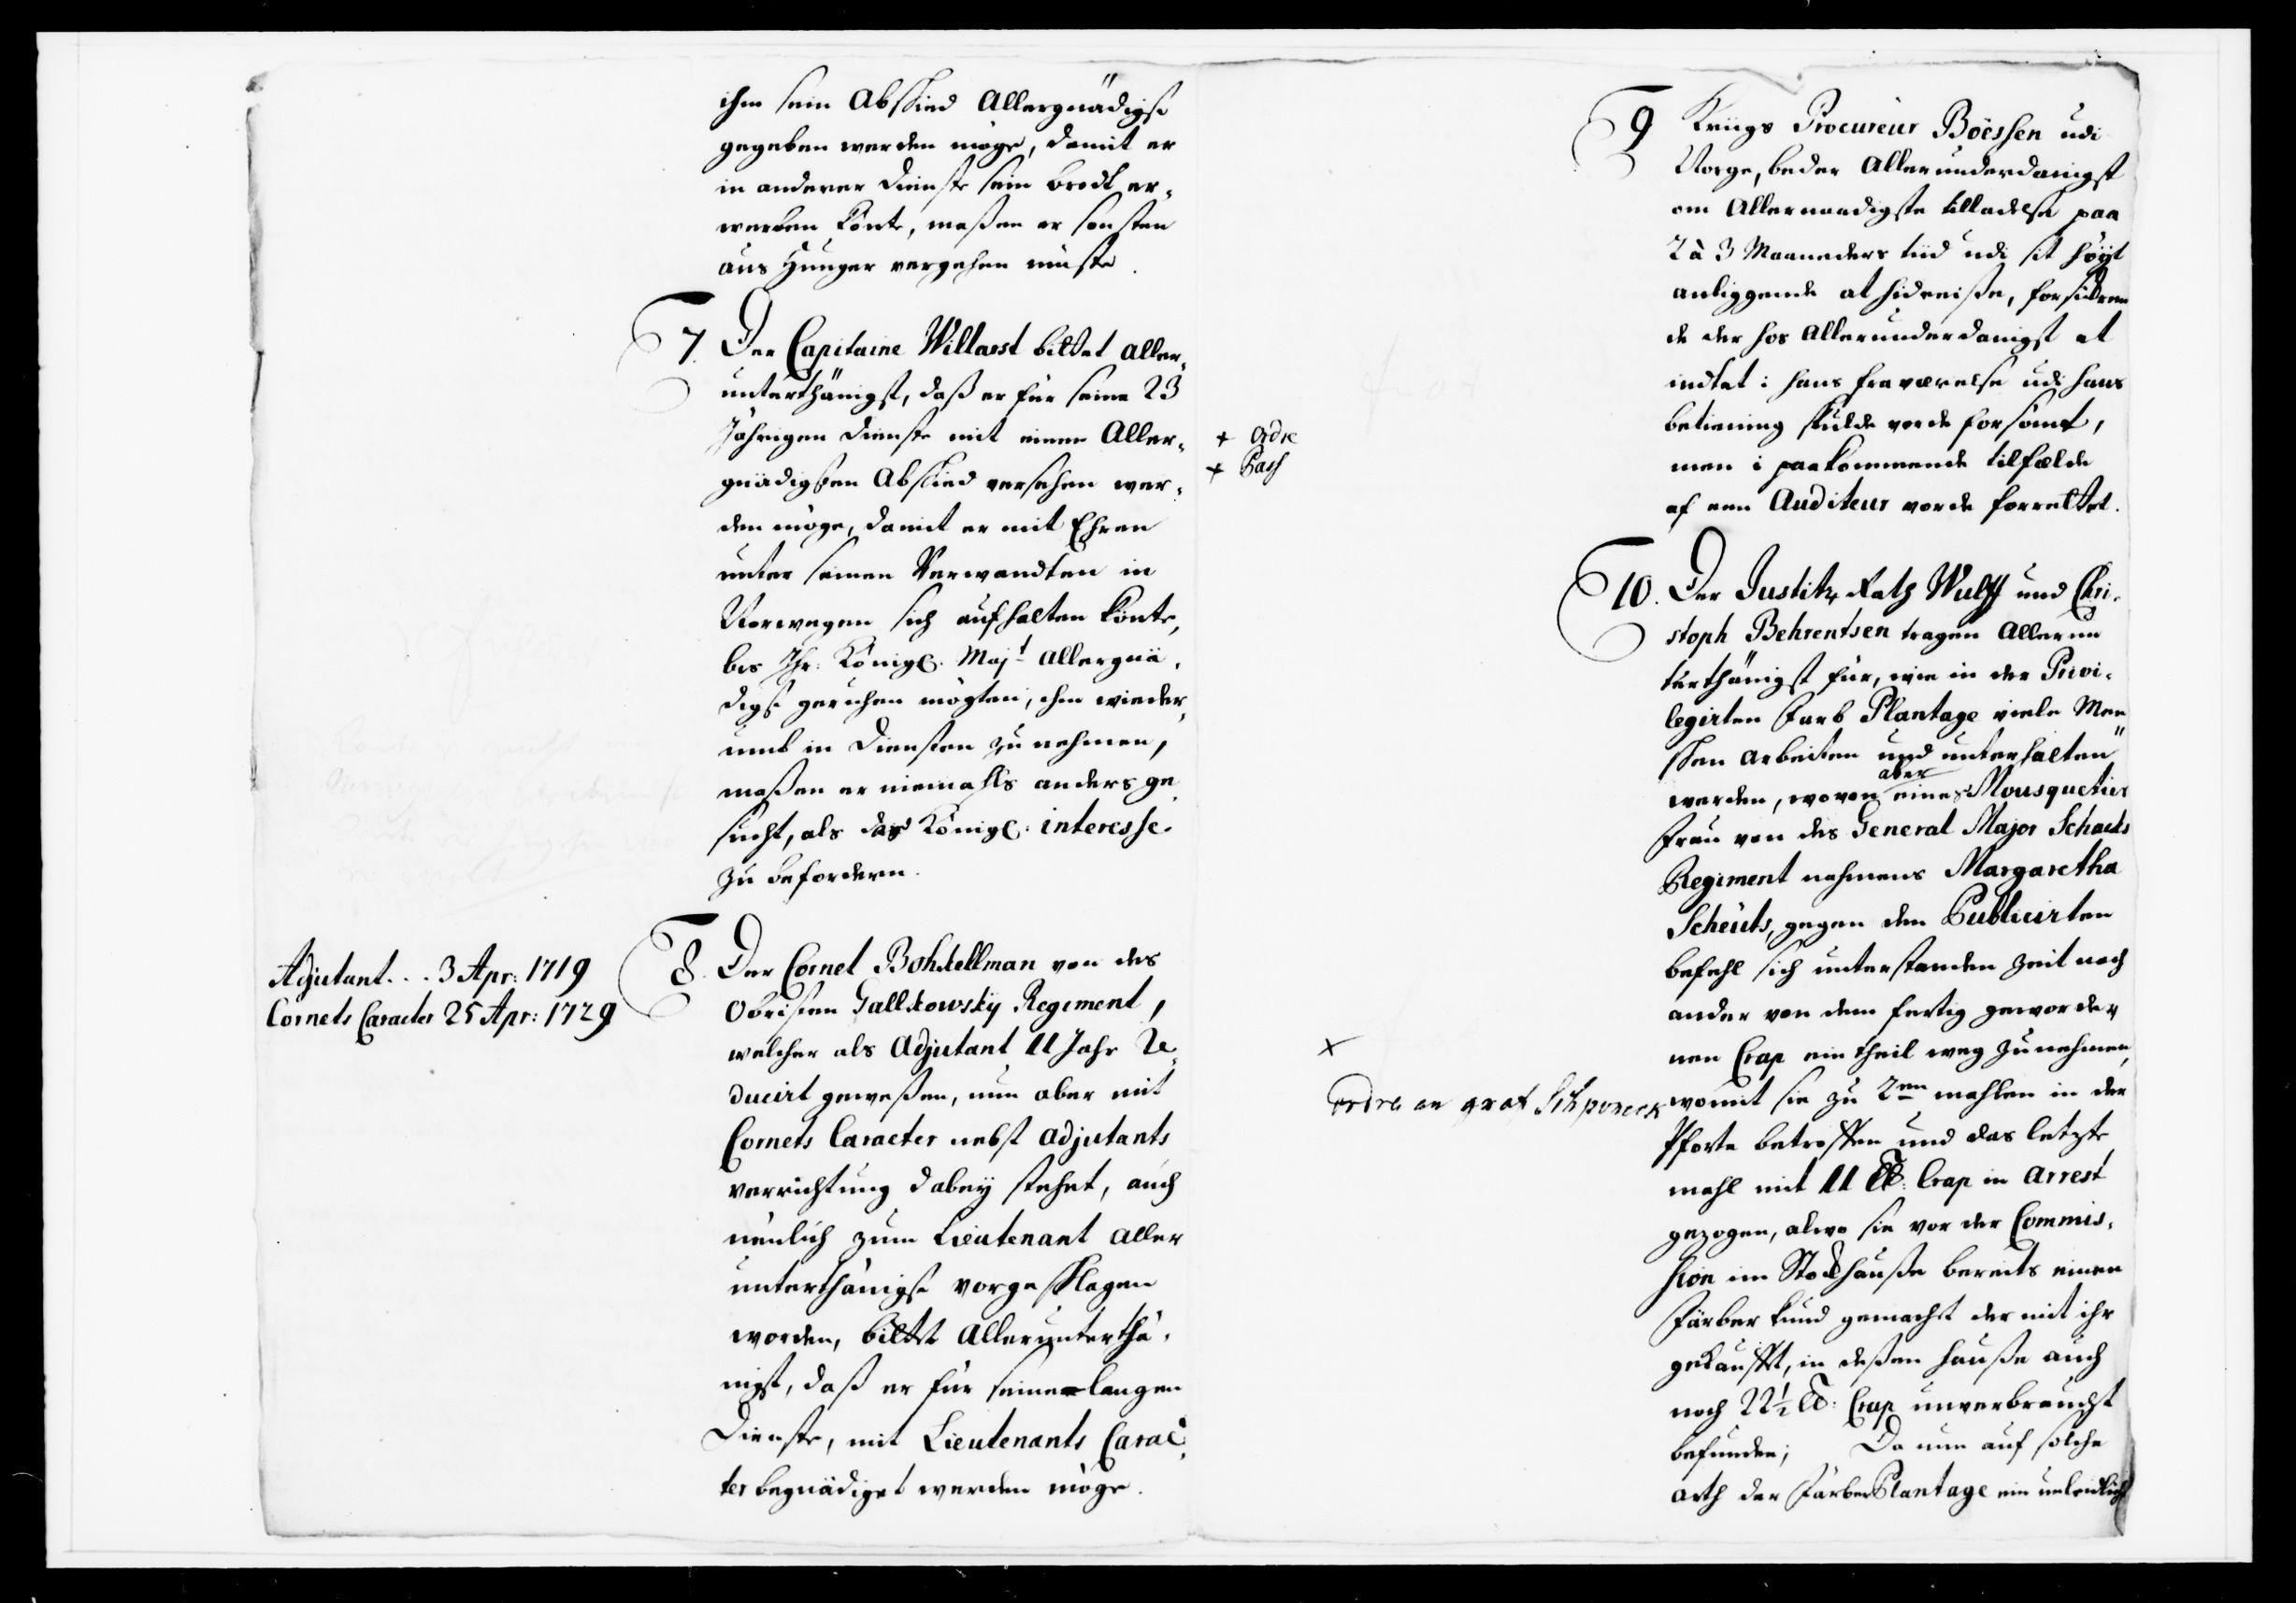 ihm sein Abschied Allergnädigst
gegeben werden möge, damit er
in anderer Dienste sein brodt er-
werben könte, maßen er sonsten
aus Hunger vergehen müste.
7. Der Capitaine Willarst bittet aller-
unterthänigst, daß er für seine 23
Jährigen Dienste mit einem Aller-
gnädigsten Abschied versehen wer-
den möge, damit er mit Ehren
unter seinen Verwandten in
Norwegen sich aufhalten könte,
bis Ihr: Königl. Majt allergnä-
digst geruhen mögten, ihm wieder-
umb in Diensten zu nehmen,
maßen er niemahls anders ge
sucht, als das Königl: interesse
zu befordern.
Adjutant... 3 Apr: 1719
Cornets Caracter 25 Apr: 1729
8. Der Cornet Bohkellman von des
Obristen Gallkowsky Regiment,
welcher als Adjutant 11 Jahr Re-
ducirt geweßen, nun aber mit
Cornets Caracter nebst adjutants
verrichtung dabey stehet, auch
neulich zum Lieutenant aller
unterthänigst vorgeschlagen
worden, bittet allerunterthä-
nigst, daß er für seine langen
Dienste, mit Lieutenants Carac-
ter begnädiget werden möge.
+ Ordre
+ Pass
9 Kriigs Procureur Böessen udi
Norge, beder Allerunderdanigst
om Allernaadigste tilladelse paa
2 à 3 Maaneders tiid udi sit höyt
anliggende at hidreise, forsikren
de der hos Allerunderdanigst at
intet i hans fraværelse udi hans
betiening skulde vorde forsömt,
men i paakommende tilfælde
af een Auditeur vorde forrettet.
10. Der Justitz Rath Wulff und Chri-
stoph Behrentsen tragen Allerun
terthänigst für, wie in der Privi-
legirten Farb Plantage viele Men
schen arbeiten und unterhalten
werden, wovon aber eines Mousquetiers
Frau von des General Major Schacks
Regiment nahmens Margaretha
Scheüts, gegen den Publicirten
befehl sich unterstanden Zeit nach
ander von dem fertig geworde-
nen Crap ein theil weg zunehmen,
womit sie zu 2en mahlen in der
Pforte betroffen und das letzte
mahl mit 11 ℔: Crap in arrest
gezogen, alwo sie vor der Commis-
sion im Stockhause bereits einen
Färber kund gemacht der mit ihr
gekaufft, in deßen hause auch
noch 22½ ℔: Crap unverbraucht
befunden; Da nun auf solche
arth der Färber Plantage ein unleidlich
+
ordre an